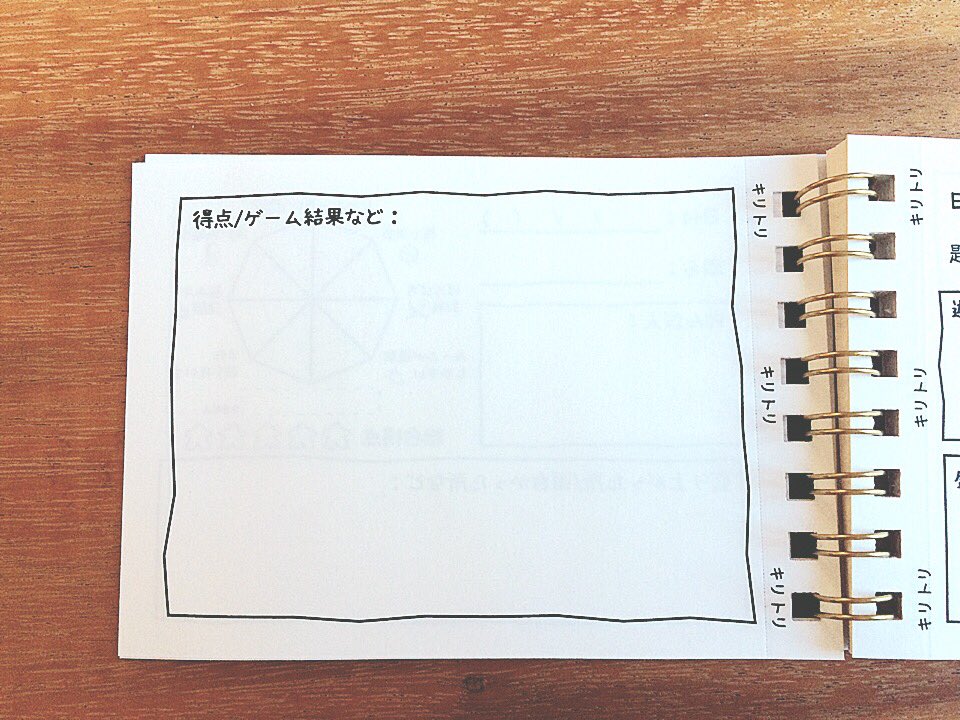 得点/ゲーム結果など：
キリトリ
キリトリ
キリトリ
キリトリ
キリトリ
キリトリ
題